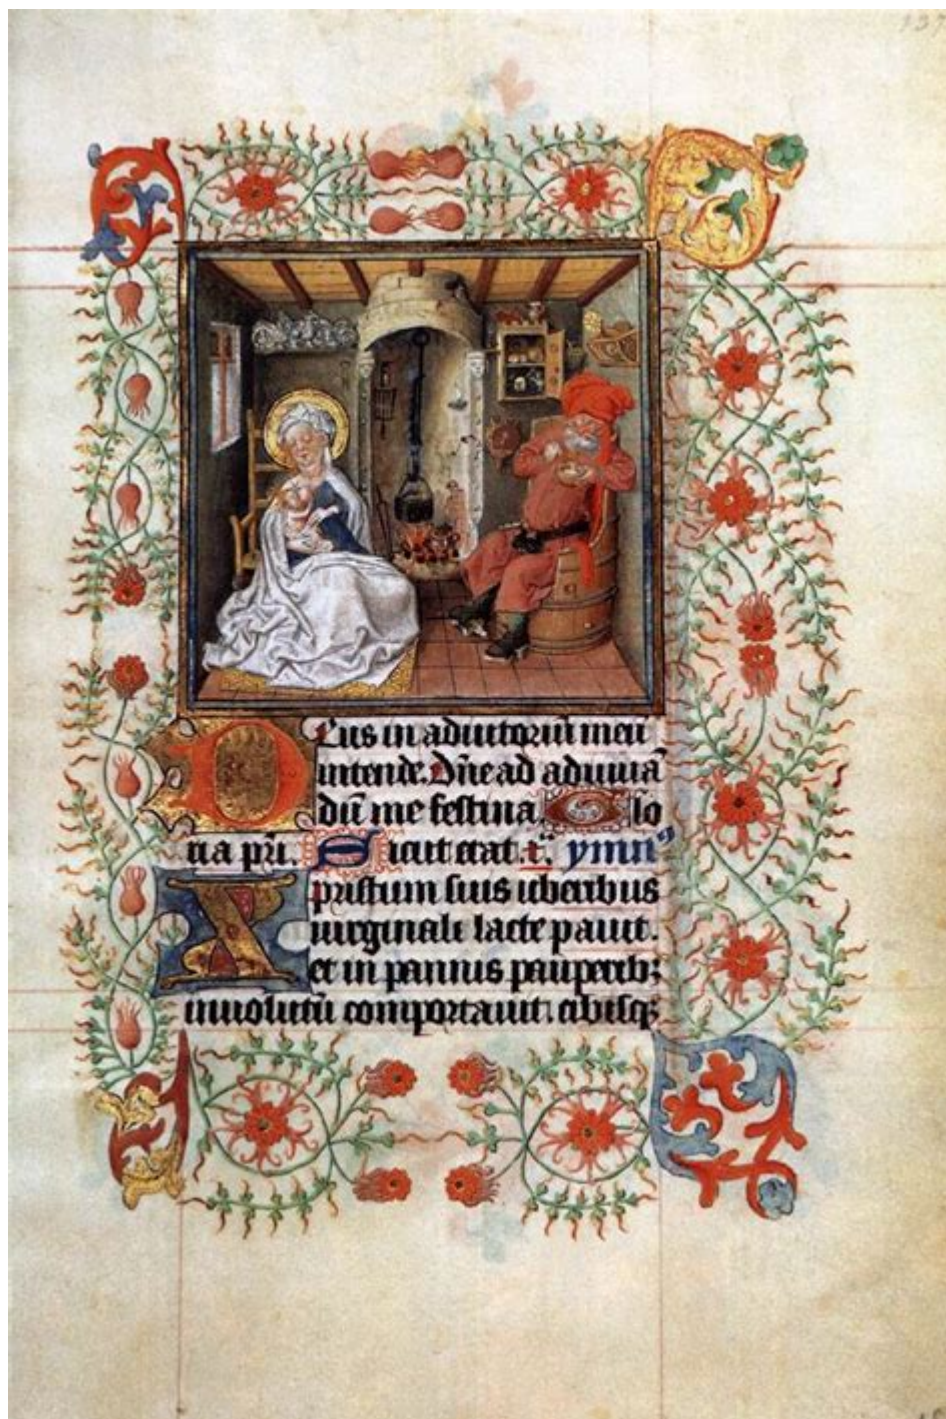 Deus in adiutoriū meū
intende. Dn̄e ad adiuuā
dū me festina. Glo
ria pr̄i. Sicut erat. ymn᷒
Xpristum suis uberibus
uirginali lacte pauit.
et in pannis pauperib;
inuolutū comportauit. cibisq;